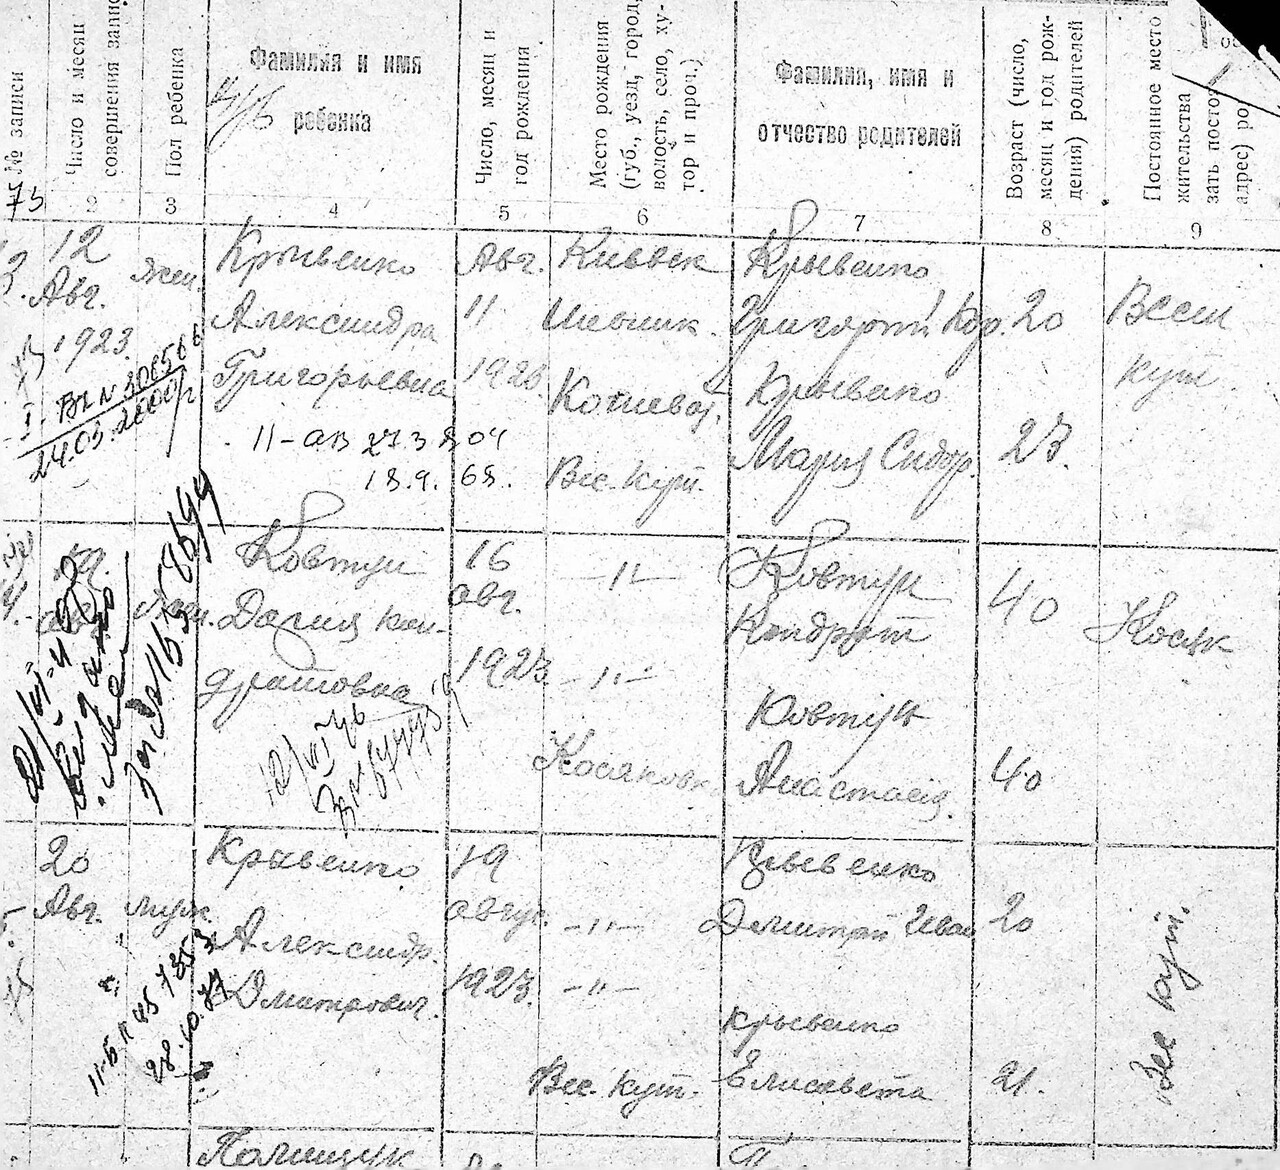 № записи
Число и месяц
совершения запис
Пол ребенка
Фамилия и имя
ребенка
Число, месяц и
год рождения
Место рождения
(губ., уезд, город,
волость, село, ху-
тор и проч.)
Фамилия, имя и
отчество родителей
Возраст (число,
месяц и год рож-
дения) родителей
Постоянное место
жительства
зать постоя
адрес) ро
2
3
4
5
6
7
8
9
12
Авг.
1923.
жен.
Крывенко
Александра
Григорьевна
11-ав 273804
18.9. 68.
Авг.
11
1923
Киевск
Кошеват.
Вес. Кут.
Крывенко
Григорий
Крывенко
Мария Сидор.
20
23.
Весел
кут
24.03.2000г
Ковтун
Дария Кон-
дратовна
16
авг.
1923.
-"-
-"-
Косяковк
Ковтун
Кондрат
Ковтун
Анастасия
40
40
Косяк
20
Авг.
муж.
Крывенко
Александр.
Дмитрович.
19
август.
1923.
-"-
-"-
Вес. Кут.
Крывенко
Дмитрий Иван
Крывенко
Елисавета
20
21.
Вес кут.
28.10.77
Полищук